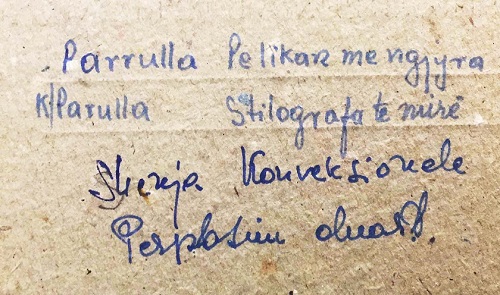 Parrulla Pelikan me ngjyra
K/Parulla Stilografa te mirë
Shenja Konveksionale
Perplasim duarsh.